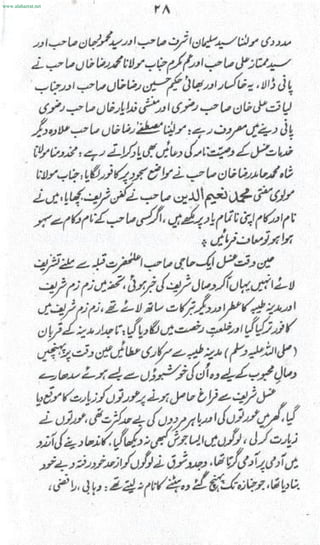 www.alahazrat.net
۲۸
مدد دی مولٰنا سید سلیمان اشرف صاحب اور سید محمود جان صاحب اور
سید ممتاز علی صاحب اور عم مکرم جناب مولانا محمد رضا خاں صاحب نے
پانی ڈالا، یہ خاکسار اور بھائی حکیم حسین رضا خاں صاحب اور جناب
لیاقت علی خان صاحب رضوی اور منشی فدا یار خاں صاحب رضوی
پانی دینے میں مصروف رہے: مولٰینا مصطفےٰ رضا خاں صاحب علاوہ دیگر
خدمات غسل کے وصیت نامہ کی دعائیں بھی یاد کراتے رہے: مخدومنا مولانا
شاہ محمد حامد رضا خان صاحب نے مواضع سجود پر کافور لگایا: جناب مولانا
مولوی مفتی محمد نعیم الدین صاحب نے کفن شریف بچھایا، میں نے
نام اور کام اپنی ناتمام یاد پر لکھے ہیں، اگر کسی صاحب کے نام و کام سے سہو
ہوا ہو تو معاف فرمائیں
عین وقت غسل ایک حاجی صاحب اعلٰحضرت قبلہ سے ملنے تشریف
لائے انہیں یہاں آکر وصال شریف کی خبر ہوئی، تحفہ میں زم زم شریف
اور مدینہ طیبہ کا عطر اور دیگر تبرکات ساتھ لائے تھے، زم زم شریف میں
کافور تر کیا گیا اور خلعت رخصت میں لگا دیا گیا: تاجدار مدینہ کے قربان
(صلی اللہ علیہ وسلم) مدینہ طیبہ سے سرکاری عطائیں عین وقت پر پہنچیں
وصال محبوب کے لیے وہ اُن کی خوشبوؤں سے بسے ہوئے سدھارے
غسل شریف سے فراغ حاصل ہونے پر عورتوں کو زیارت کا موقع دیا
گیا، گھر میں عورتوں کی اور باہر مردوں کی بے حد کثرت تھی، عورتوں نے
زیارت کر لی، لوگوں میں ایسا جوش کبھی نہ دیکھا گیا، کاندھا دینے کی آرزو
میں آدمی پر آدمی گرتا تھا، وجد و شوق نے لوگوں کو از حد خود رفتہ و بے خود
بنا دیا تھا، جو جنازہ تک پہنچ گئے وہ ہٹنے کا نام نہ لیتے تھے: وہابی، رافضی،